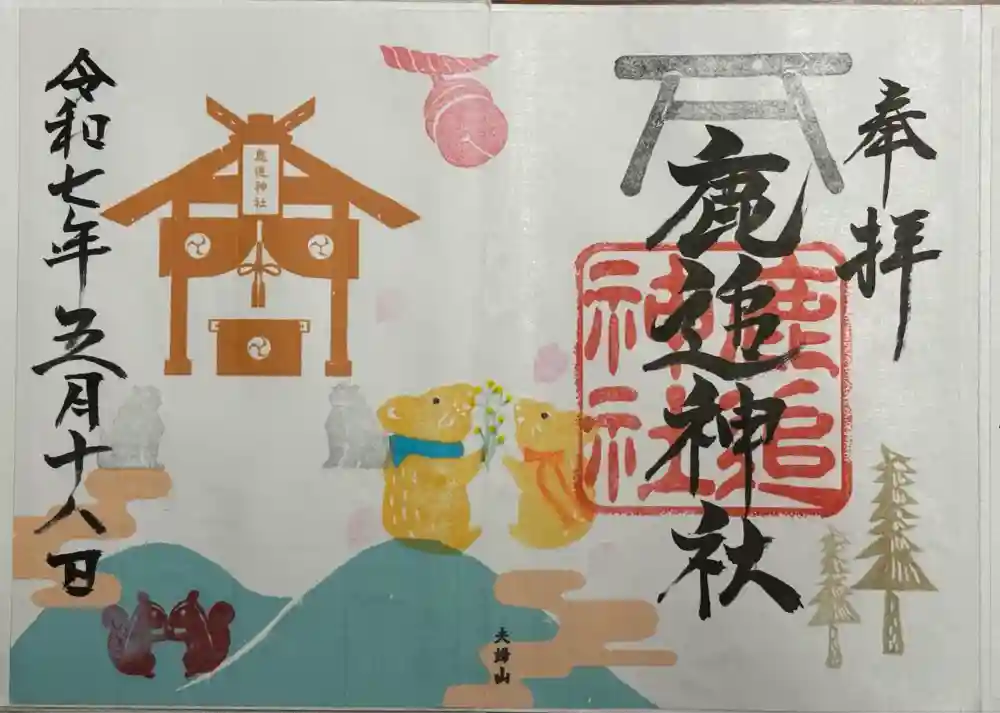 奉拝
鹿追神社
鹿追神社
夫婦山
鹿追神社
令和七年五月十八日